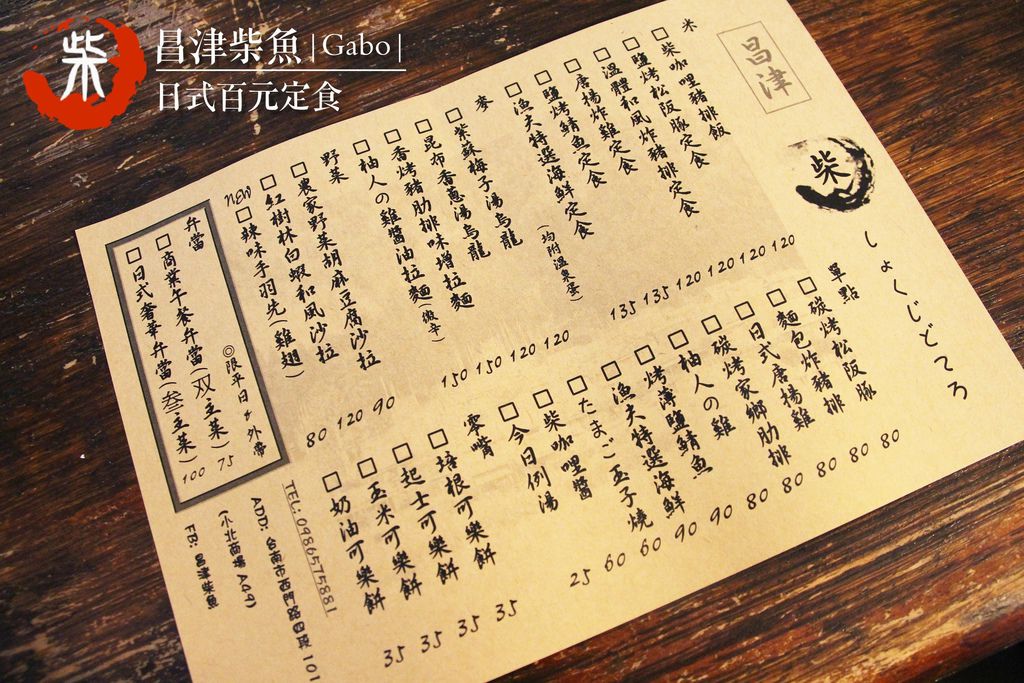 柴
昌津柴魚 |Gabo|
日式百元定食
昌津
柴
しょくじどころ
米
□柴咖哩豬排飯 120
□鹽烤松阪豚定食 120
□溫體和風炸豬排定食 120
□唐揚炸雞定食 120
□鹽烤鯖魚定食 135
□漁夫特選海鮮定食 135
(均附溫泉蛋)
麥
□紫蘇梅子湯烏龍 120
□昆布香蔥湯烏龍 120
□香烤豬肋排味增拉麵 150
□柚人の雞醬油拉麵(微辛) 150
野菜
□農家野菜胡麻豆腐沙拉 90
□紅樹林白蝦和風沙拉 120
NEW□辣味手羽先(雞翅) 80
弁當 ◎限平日&外帶
□商業午餐弁當(双主菜) 75
□日式奢華弁當(叁主菜) 100
單點
□碳烤松阪豚 80
□麵包炸豬排 80
□日式唐揚雞 80
□碳烤家鄉肋排 80
□柚人の雞 80
□烤薄鹽鯖魚 90
□漁夫特選海鮮 90
□たまご玉子燒 60
□柴咖哩醬 60
□今日例湯 25
零嘴
□培根可樂餅 35
□起士可樂餅 35
□玉米可樂餅 35
□奶油可樂餅 35
TEL:0986575881
ADD:台南市西門路四段101
(小北商場A49)
FB:昌津柴魚